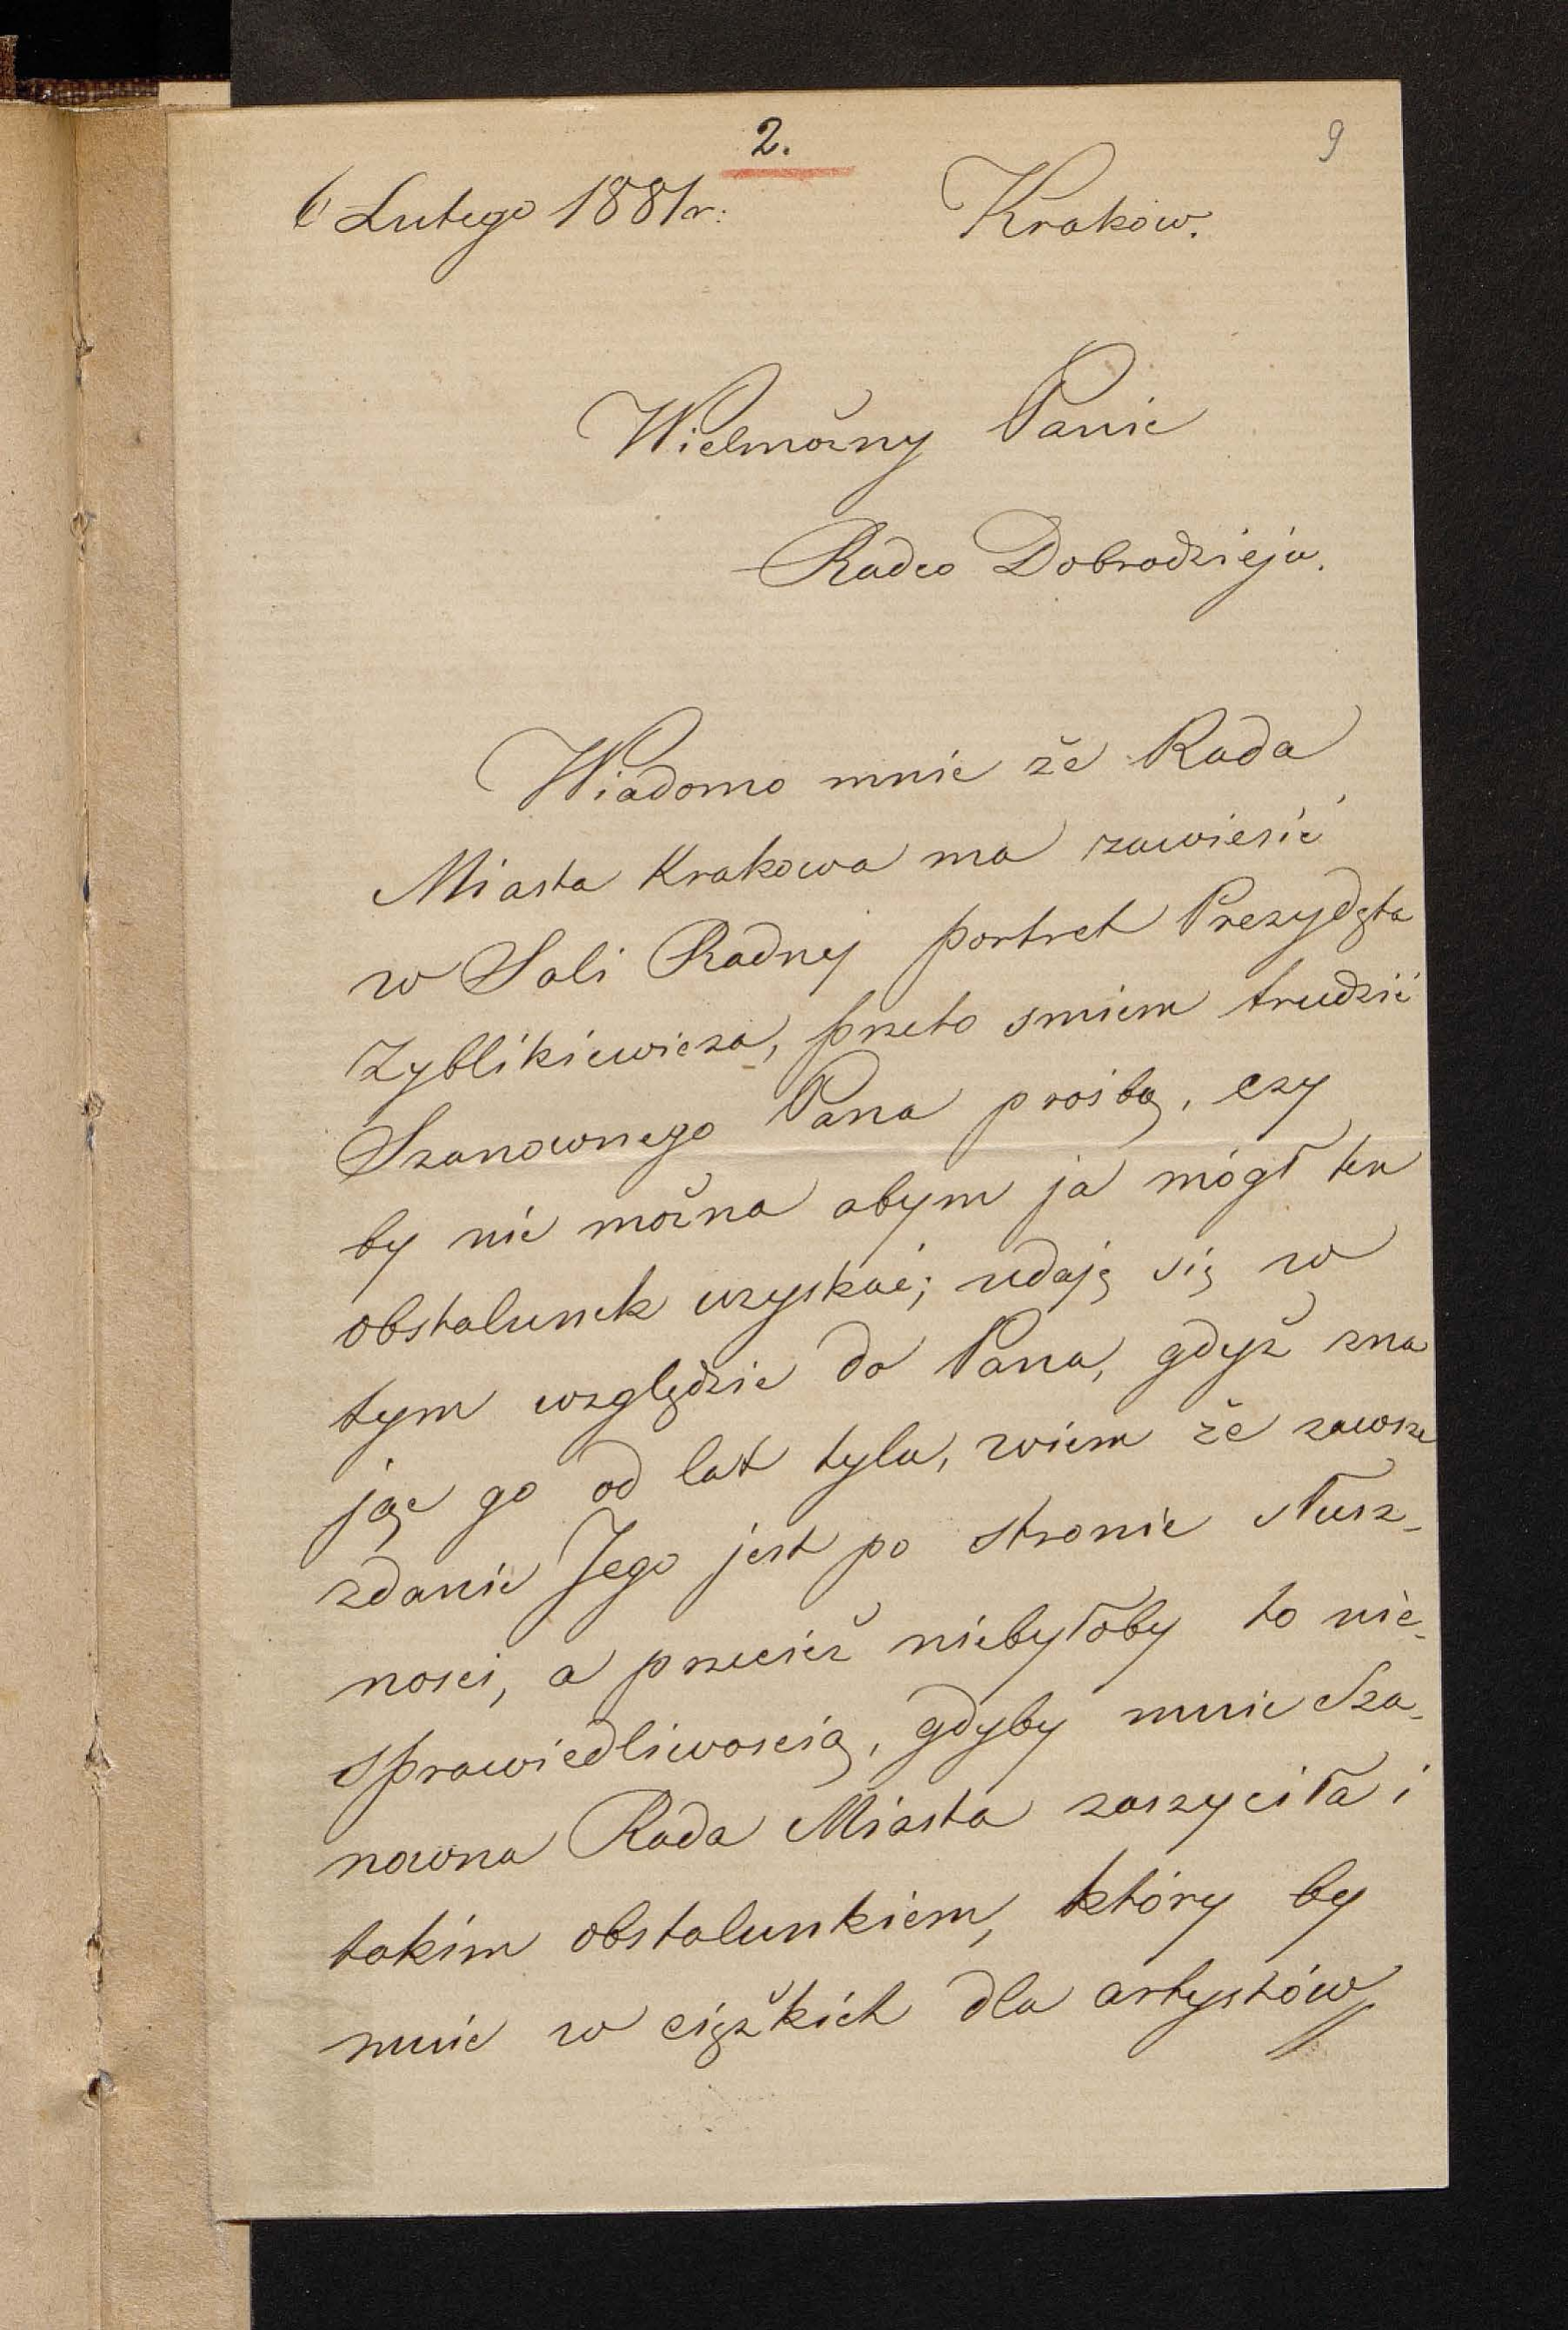 2.
9
6 Lutego 1881r: Kraków.
Wielmożny Panie
Radco Dobrodzieju.
Wiadomo mnie że Rada
Miasta Krakowa ma zawiesić
w Sali Radnej portret Prezydęta
Zyblikiewicza, przeto smiem trudzić
Szanownego Pana prośbą, czy
by nie można abym ja mógł ten
obstalunek uzyskać; udaję się w
tym względzie do Pana, gdyż zna
jąc go od lat tylu, wiem że zawsze
zdanie Jego jest po stronie słusz-
ności, a przecież niebyłoby to nie-
sprawiedliwością, gdyby mnie Sza-
nowna Rada Miasta zaszyciła i
takim obstalunkiem, który by
mnie w ciężkich dla artystów